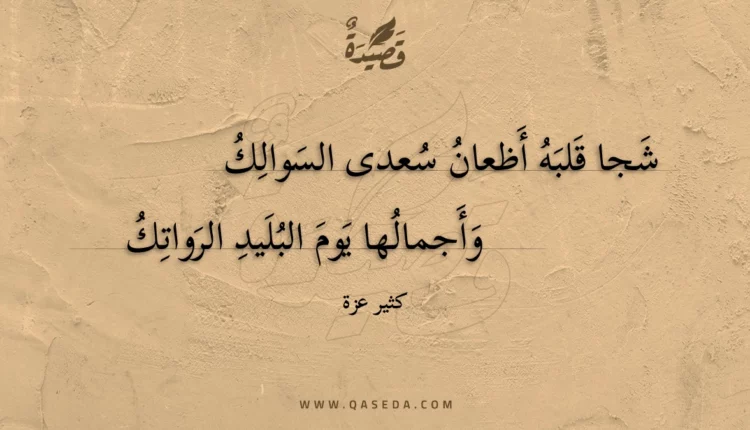 قَصِيْدَةٌ
شَجا قَلبَهُ أَظعانُ سُعدى السَوالِكُ
وَأَجمالُها يَومَ البُلَيدِ الرَواتِكُ
كثير عزة
WWW.QASEDA.COM